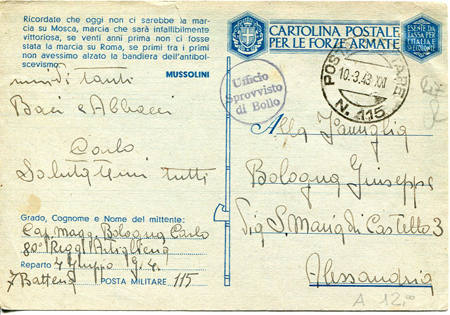 Ricordate che oggi non ci sarebbe la mar-
cia su Mosca, marcia che sarà infallibilmente
vittoriosa, se venti anni prima non ci fosse
stata la marcia su Roma, se primi tra i primi
non avessimo alzato la bandiera dell'antibol-
scevismo.
MUSSOLINI
tanti
Baci e Abbracci
Carlo
Salutatemi tutti
Grado, Cognome e Nome del mittente:
Cap. Magg. Bologna Carlo
80° Regg. Artiglieria
Reparto 4 Gruppo G. a.
7 Batteria POSTA MILITARE 115
CARTOLINA POSTALE
PER LE FORZE ARMATE
ESENTE DA
TASSA PER
L'ITALIA E
Ufficio
Sprovvisto
di Bollo
POSTA MILITARE
10.3.43 XXI
N. 115
Alla Famiglia
Bologna Giuseppe
Via S. Maria di Castello 3
Alessandria
A 12,00